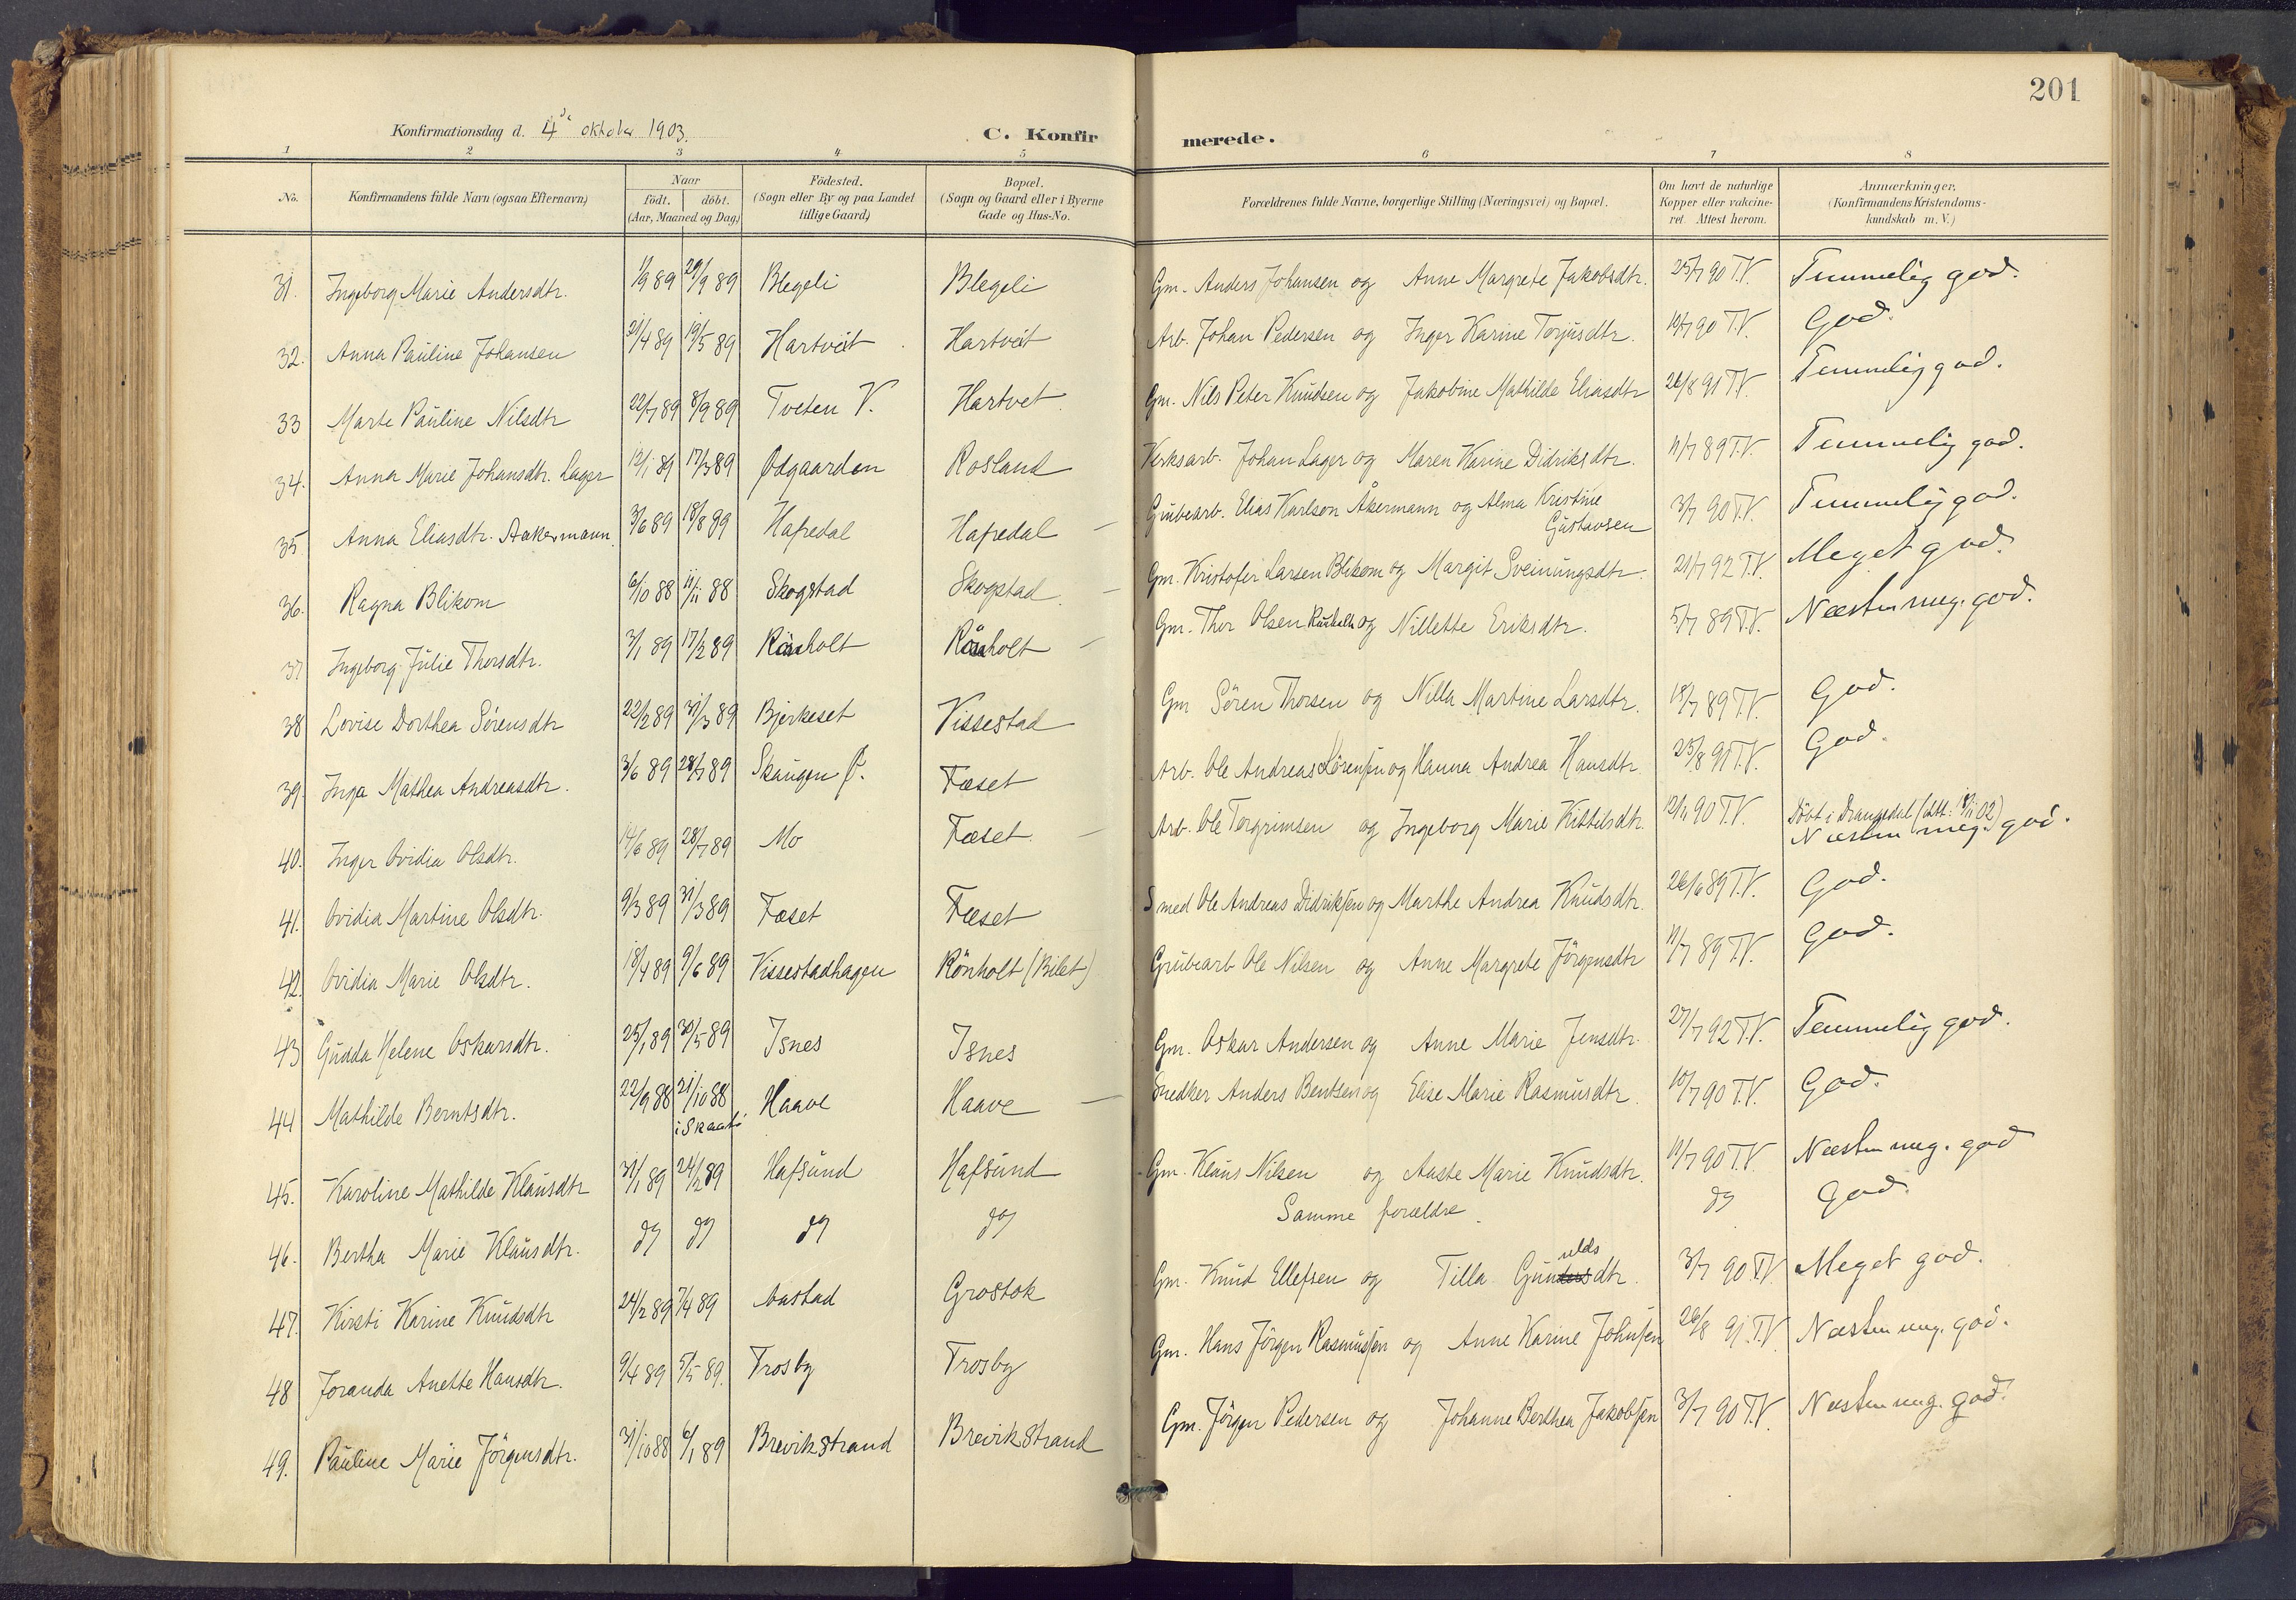 201
Konfirmationsdag d. 4de oktober 1903.
C. Konfirmerede.
1 2 3 4 5 6 7 8
No. Konfirmandens fulde Navn (ogsaa Efternavn) Naar födt. döbt. (Aar, Maaned og Dag.) Födested. (Sogn eller By og paa Landet tillige Gaard) Bopæl. (Sogn og Gaard eller i Byerne Gade og Hus-No. Forældrenes fulde Navne, borgerlige Stilling (Næringsvei) og Bopæl. Om havt de naturlige Kopper eller vakcineret. Attest herom. Anmærkninger. (Konfirmandens Kristendomskundskab m. V.)
31. Ingeborg Marie Andersdtr. 1/9 89 29/9 89 Blegeli Blegeli Gm. Anders Johansen og Anne Margrete Jakobsdtr. 25/7 90 T.V. Temmelig god.
32. Anna Pauline Johansen 21/4 89 19/5 89 Hartveit Hartveit Arb. Johan Pedersen og Inger Karine Torjusdtr. 10/7 90 T.V. God.
33 Marte Pauline Nilsdtr 22/7 89 8/9 89 Tveten V. Hartvet Gm. Nils Peter Knudsen og Jakobine Mathilde Eliasdtr 26/8 91 T.V. Temmelig god.
34. Anna Marie Johansdtr. Lager 12/1 89 17/3 89 Ødgaarden Rosland Verksarb. Johan Lager og Maren Karine Didriksdtr. 11/7 89 T.V. Temmelig god.
35 Anna Eliasdtr. Aakermann 3/6 89 18/8 89 Hafredal Hafredal Grubearb. Elias Karlson Åkermann og Alma Kristine Gustavsen 3/7 90 T.V. Temmelig god.
36. Ragna Blikom 6/10 88 11/11 88 Skogstad Skogstad Gm. Kristofer Larsen Blikom og Margit Sveinungsdtr. 21/7 92 T.V. Meget god.
37 Ingeborg Julie Thorsdtr. 3/1 89 17/2 89 Rönholt Rönholt Gm. Thor Olsen Rönholt og Nillette Eriksdtr. 5/7 89 T.V. Næsten meg. god.
38 Lovise Dorthea Sörensdtr 22/2 89 31/3 89 Bjerkeset Vissestad Gm Sören Thorsen og Nilla Martine Larsdtr. 18/7 89 T.V. God.
39. Inga Mathea Andreasdtr. 3/6 89 28/7 89 Skaugen Ø. Fæset Arb. Ole Andreas Sörensen og Hanna Andrea Hansdtr 25/8 91 T.V. God.
40. Inger Ovidia Olsdtr. 14/6 89 28/7 89 Mo Fæset Arb. Ole Torgrimsen og Ingeborg Marie Kittilsdtr. 12/11 90 T.V. Döbt i Drangedal (att. 18/11 02) Næsten meg. god.
41. Ovidia Martine Olsdtr. 9/3 89 31/3 89 Fæset Fæset Smed Ole Andreas Didriksen og Marthe Andrea Knudsdtr. 26/6 89 T.V. God.
42. Ovidia Marie Olsdtr. 18/4 89 9/6 89 Vissestadhagen Rönholt (Bilet) Grubearb Ole Nilsen og Anne Margrete Jörgensdtr 11/7 89 T.V. God.
43 Gudda Helene Oskarsdtr. 25/1 89 30/5 89 Isnes Isnes Gm. Oskar Andersen og Anne Marie Jensdtr. 27/7 92 T.V. Temmelig god.
44 Mathilde Berntsdtr. 22/9 88 21/10 88 i Skaatö Haave Haave Snedker Anders Bentsen og Elise Marie Rasmusdtr. 10/7 90 T.V. God.
45. Karoline Mathilde Klausdtr 31/1 89 24/2 89 Hafsund Hafsund Gm. Klaus Nilsen og Aaste Marie Knudsdtr. 11/7 90 T.V. Næsten meg. god
46. Bertha Marie Klausdtr. dg dg dg dg Samme forældre. dg God.
47. Kirsti Karine Knudsdtr 24/2 89 7/4 89 Aastad Grostok Gm. Knud Ellefsen og Tilla Gunulds dtr. 3/7 90 T.V. Meget god.
48 Joranda Anette Hansdtr. 9/4 89 5/5 89. Trosby Trosby Gm. Hans Jörgen Rasmussen og Anne Karine Johnsen 26/8 91. T.V. Næsten meg. god.
49. Pauline Marie Jörgensdtr. 31/10 88 6/1 89 Brevikstrand Brevikstrand Gm. Jörgen Pedersen og Johanne Berthea Jakobsen 3/7 90 T.V. Næsten meg. god.